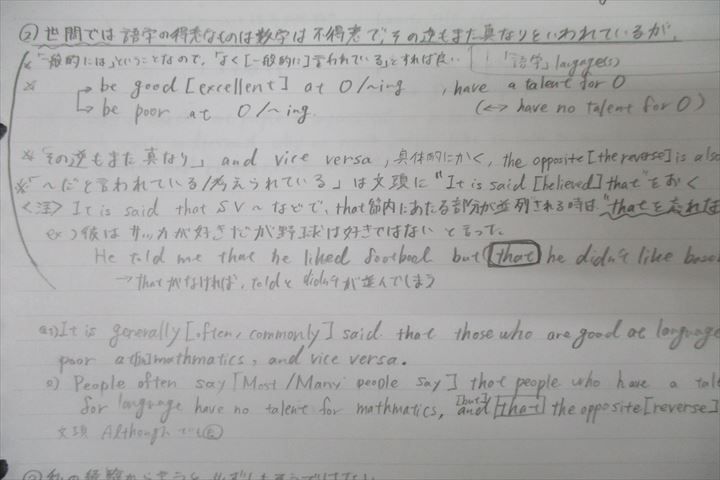 ② 世間では語学の得意なものは数学は不得意で、その逆もまた真なりといわれているが、
※「一般的には」ということなので、「よく[一般的に]言われている」とすれば良い 「語学」 language(s)
※ → be good [excellent] at O/~ing , have a talent for O
→ be poor at O/~ing. (↔ have no talent for O)
※「その逆もまた真なり」 and vice versa, 具体的にかく, the opposite [the reverse] is also
※「~だと言われている/考えられている」は文頭に "It is said [believed] that" をおく
<注> It is said that SV ~ などで、that節内にあたる部分が並列される時は "thatを忘れな
ex) 彼はサッカーが好きだが野球は好きではないと言って、
He told me that he liked football but that he didn't like base
→ thatがなければ, toldと didn'tが並んでしまう
It is generally [often, commonly] said that those who are good at language
poor at [in] mathmatics, and vice versa.
People often say [Most/Many people say] that people who have a tale
for language have no talent for mathmatics, [but] and that the opposite [reverse]
文頭 Although でも